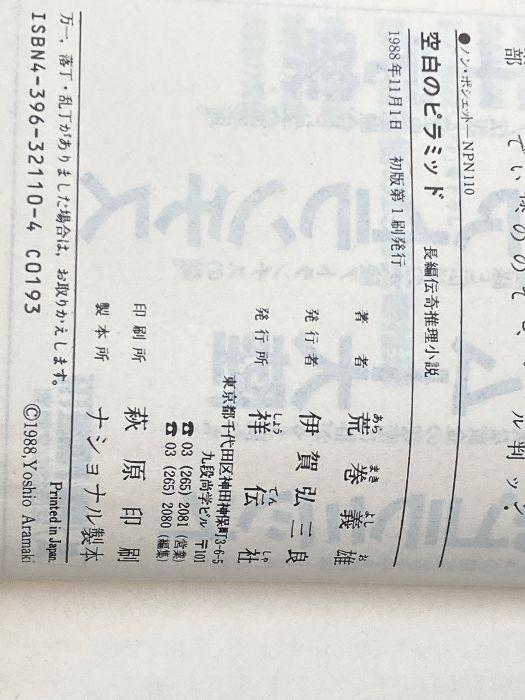 部
●ノン・ポシェット—NPN110
空白のピラミッド 長編伝奇推理小説
1988年11月1日 初版第1刷発行
著者 荒巻義雄
あらまきよしお
発行者 伊賀弘三良
発行所 祥伝社
しょうでんしゃ
東京都千代田区神田神保町3-6-5
九段尚学ビル 〒101
☎ 03 (265) 2081 (営業)
☎ 03 (265) 2080 (編集)
印刷所 萩原印刷
製本所 ナショナル製本
万一、落丁・乱丁がありました場合は、お取りかえします。 Printed in Japan.
ISBN4-396-32110-4 C0193 ©1988, Yoshio Aramaki